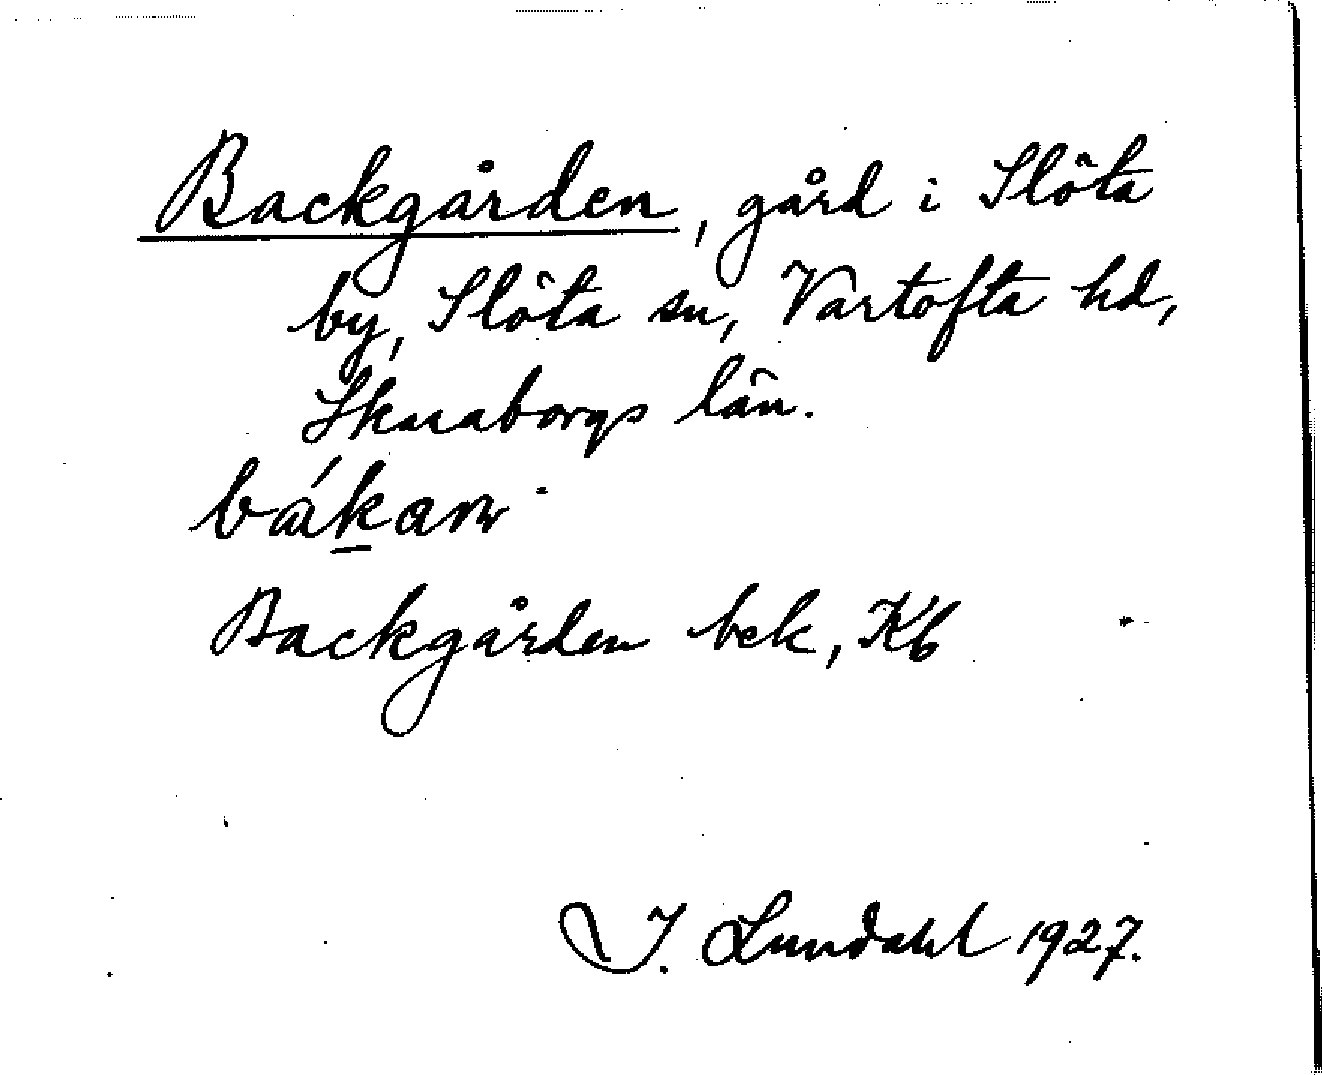 Backgården, gård i Slöta
by, Slöta sn, Vartofta hd,
Skaraborgs län.
Backgården bek, Kb
I. Lundahl 1927.